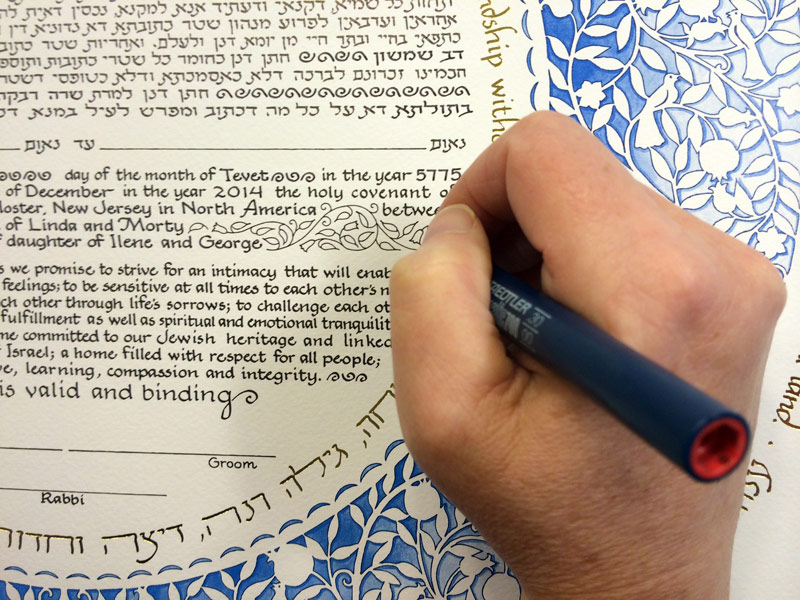 תחות כל שמיא, דקנאי ודעתיד אנא למקנא, נכסין דאית
אחראין וערבאין לפרוע מנהון שטר כתובתא דא נדוניא דין
כתפאי בחיי ובתר חיי מן יומא דנן ולעלם. ואחריות שטר
דב שמשון חתן דנן כחומר כל שטרי כתובות
חכמינו זכרונם לברכה דלא כאסמכתא ודלא כטופסי
חתן דנן למרת שרה
בתולתא דא על כל מה דכתוב ומפרש לעיל במנא
נאום עד נאום
day of the month of Tevet in the year 5775
of December in the year 2014 the holy covenant of
New Jersey in North America
of Linda and Morty
daughter of Ilene and George
we promise to strive for an intimacy that will
feelings; to be sensitive at all times to each other's
other through life's sorrows; to challenge each
fulfillment as well as spiritual and emotional
committed to our Jewish heritage and linked
Israel; a home filled with respect for all people;
learning, compassion and integrity.
is valid and binding
Groom
Rabbi
גילה רנה, דיצה
land.
STAEDTLER